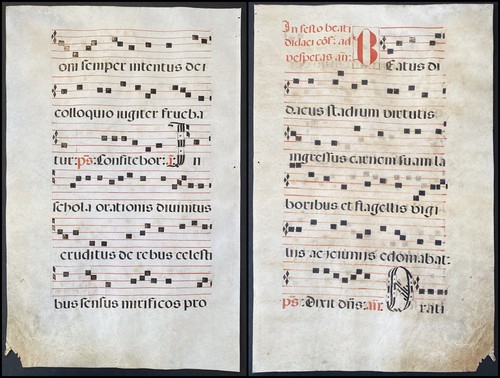 oni semper intentus dei
colloquio iugiter frueba
tur: ps: Confitebor: a In
schola orationis diuinitus
eruditus de rebus celesti
bus sensus mirificos pro
In festo beati
didaci cōf: ad
vesperas añ:
BEatus di
dacus stadium virtutis
ingressus carnem suam la
boribus et flagellis vigi
liis ac ieiuniis edomabat:
ps: Dixit dñs: añ: Orati